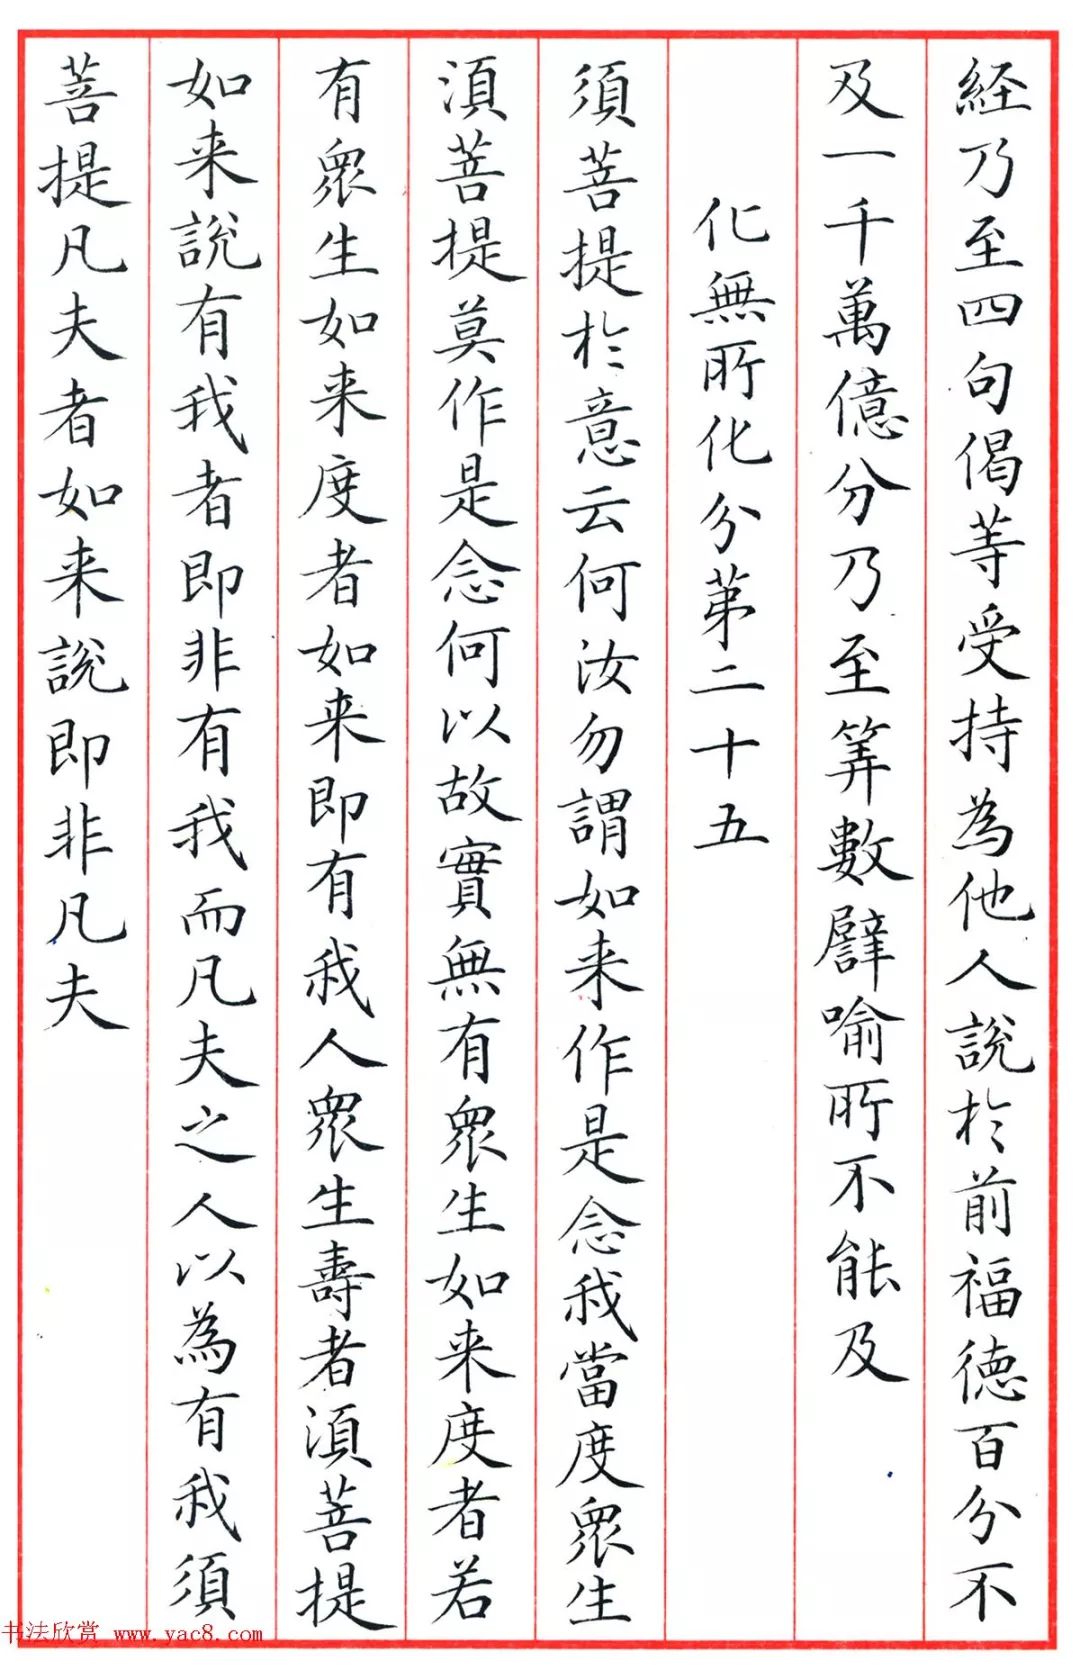 経乃至四句偈等受持為他人說於前福德百分不
及一千萬億分乃至筭數譬喻所不能及
化無所化分第二十五
須菩提於意云何汝勿謂如来作是念我當度眾生
湏菩提莫作是念何以故實無有眾生如来度者若
有眾生如来度者如来即有我人眾生壽者湏菩提
如来說有我者即非有我而凡夫之人以為有我須
菩提凡夫者如来說即非凡夫
书法欣赏 www.yac8.com